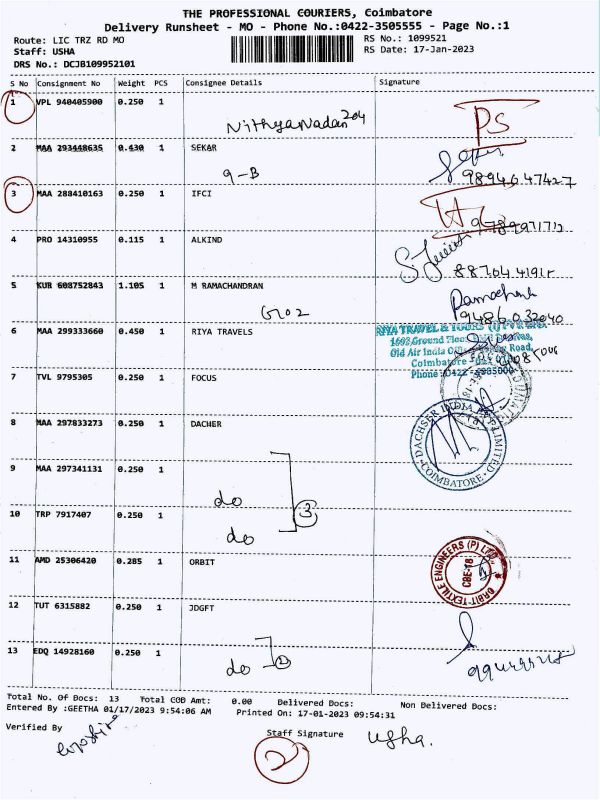 THE PROFESSIONAL COURIERS, Coimbatore
Delivery Runsheet - MO - Phone No.:0422-3505555 - Page No.:1
Route: LIC TRZ RD MO
RS No.: 1099521
Staff: USHA
RS Date: 17-Jan-2023
DRS No.: DCJB1099521​01
S No Consignment No Weight PCS Consignee Details Signature
1 VPL 940405900 0.250 1
Nithyanadan 204
PS
2 MAA 293448635 0.430 1 SEKAR
9-B
9894047427
3 MAA 288410163 0.250 1 IFCI
9789971712
4 PRO 14310955 0.115 1 ALKIND
5 KUR 608752843 1.105 1 M RAMACHANDRAN
G102
9486032040
6 MAA 299333660 0.450 1 RIYA TRAVELS
RIYA TRAVEL & TOURS (I) PVT LTD.
1602,Ground Floor,
Old Air India Office, Road,
Coimbatore
Phone :0422
7 TVL 9795305 0.250 1 FOCUS
8 MAA 297833273 0.250 1 DACHER
DACHSER INDIA PVT. LIMITED
COIMBATORE
9 MAA 297341131 0.250 1
do
3
10 TRP 7917407 0.250 1
do
11 AMD 25306420 0.285 1 ORBIT
ORBIT-TEXTILE ENGINEERS (P) LTD.
CBE-18
12 TUT 6315882 0.250 1 JDGFT
13 EDQ 14928160 0.250 1
do
2
Total No. Of Docs: 13 Total COD Amt: 0.00 Delivered Docs: Non Delivered Docs:
Entered By :GEETHA 01/17/2023 9:54:06 AM Printed On: 17-01-2023 09:54:31
Verified By
Staff Signature
usha.
2